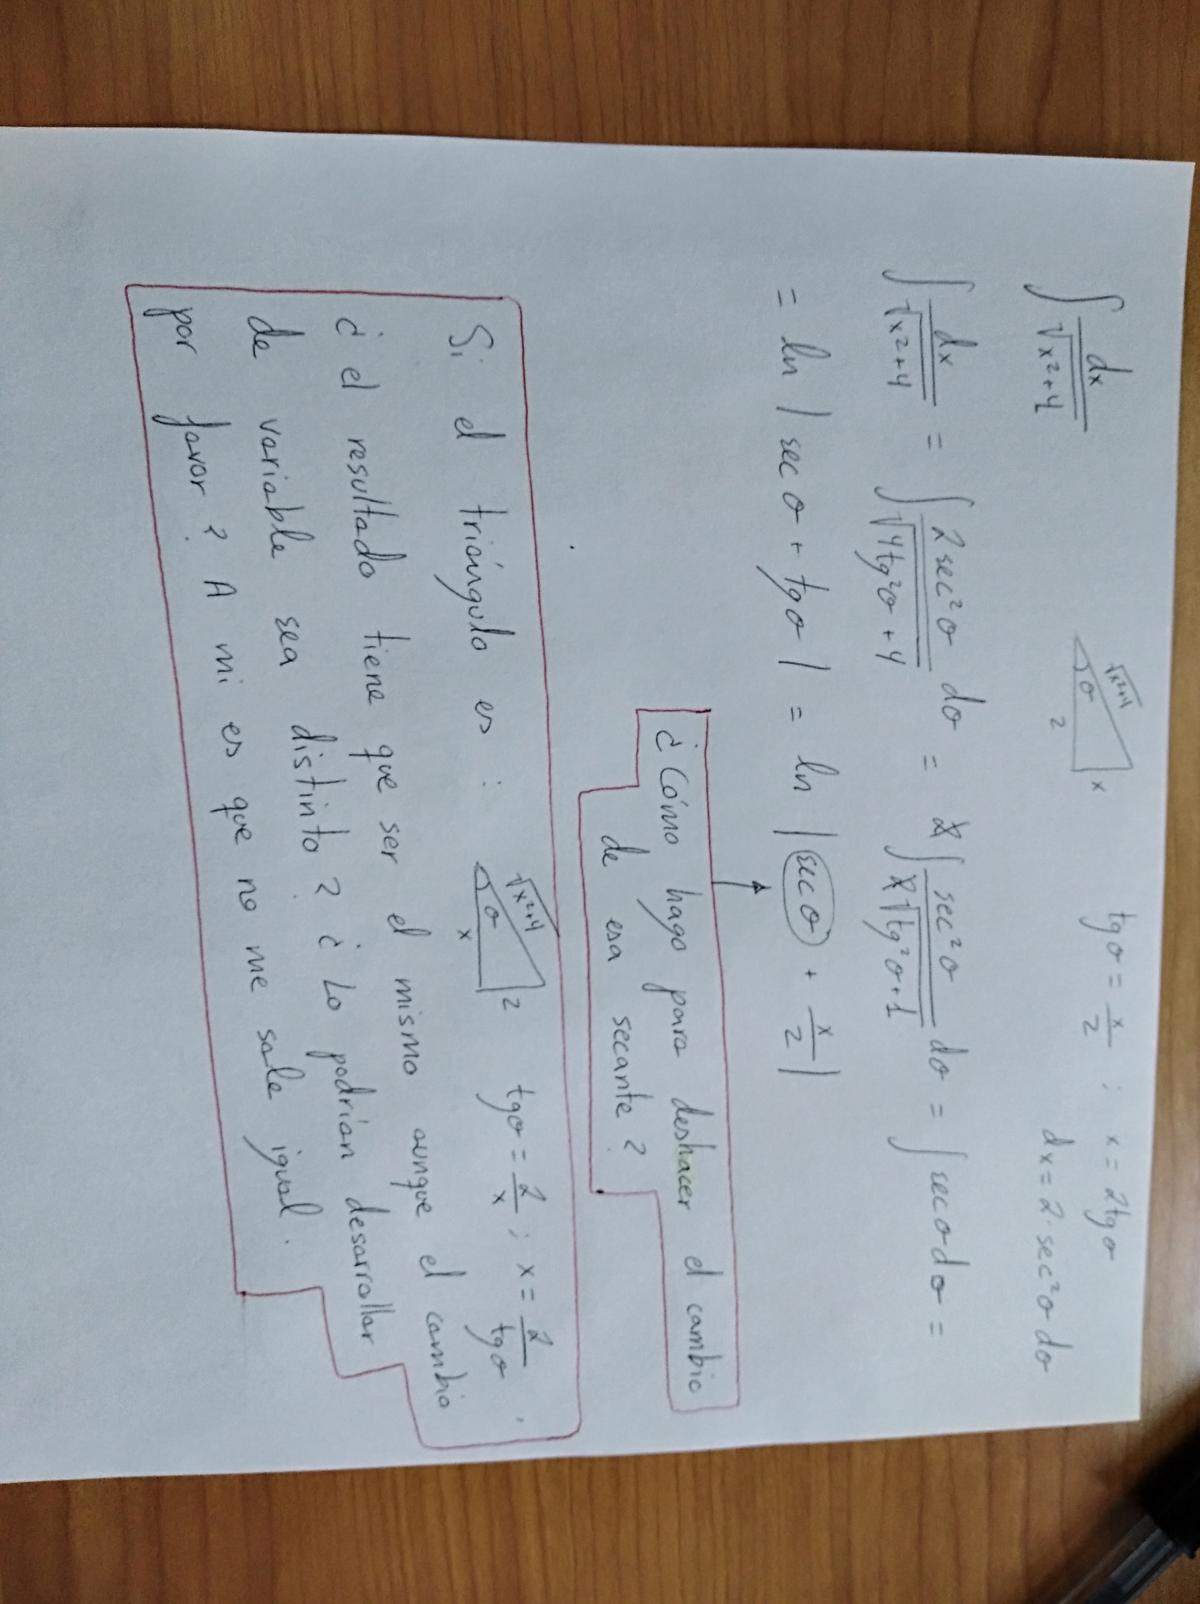 ∫ dx/√(x²+4)   √(x²+4) σ 2 x   tg σ = x/2 ; x = 2tg σ
dx = 2·sec²σ dσ
∫ dx/√(x²+4) = ∫ 2sec²σ/√(4tg²σ+4) dσ = 2∫ sec²σ/(2√(tg²σ+1)) dσ = ∫ sec σ dσ =
= ln | sec σ + tg σ | = ln | sec σ + x/2 |
¿ Cómo hago para deshacer el cambio
de esa secante ?
Si el triángulo es : √(x²+4) σ x 2   tg σ = 2/x ; x = 2/tg σ .
¿ el resultado tiene que ser el mismo aunque el cambio
de variable sea distinto ? ¿ Lo podrían desarrollar
por favor ? A mi es que no me sale igual.